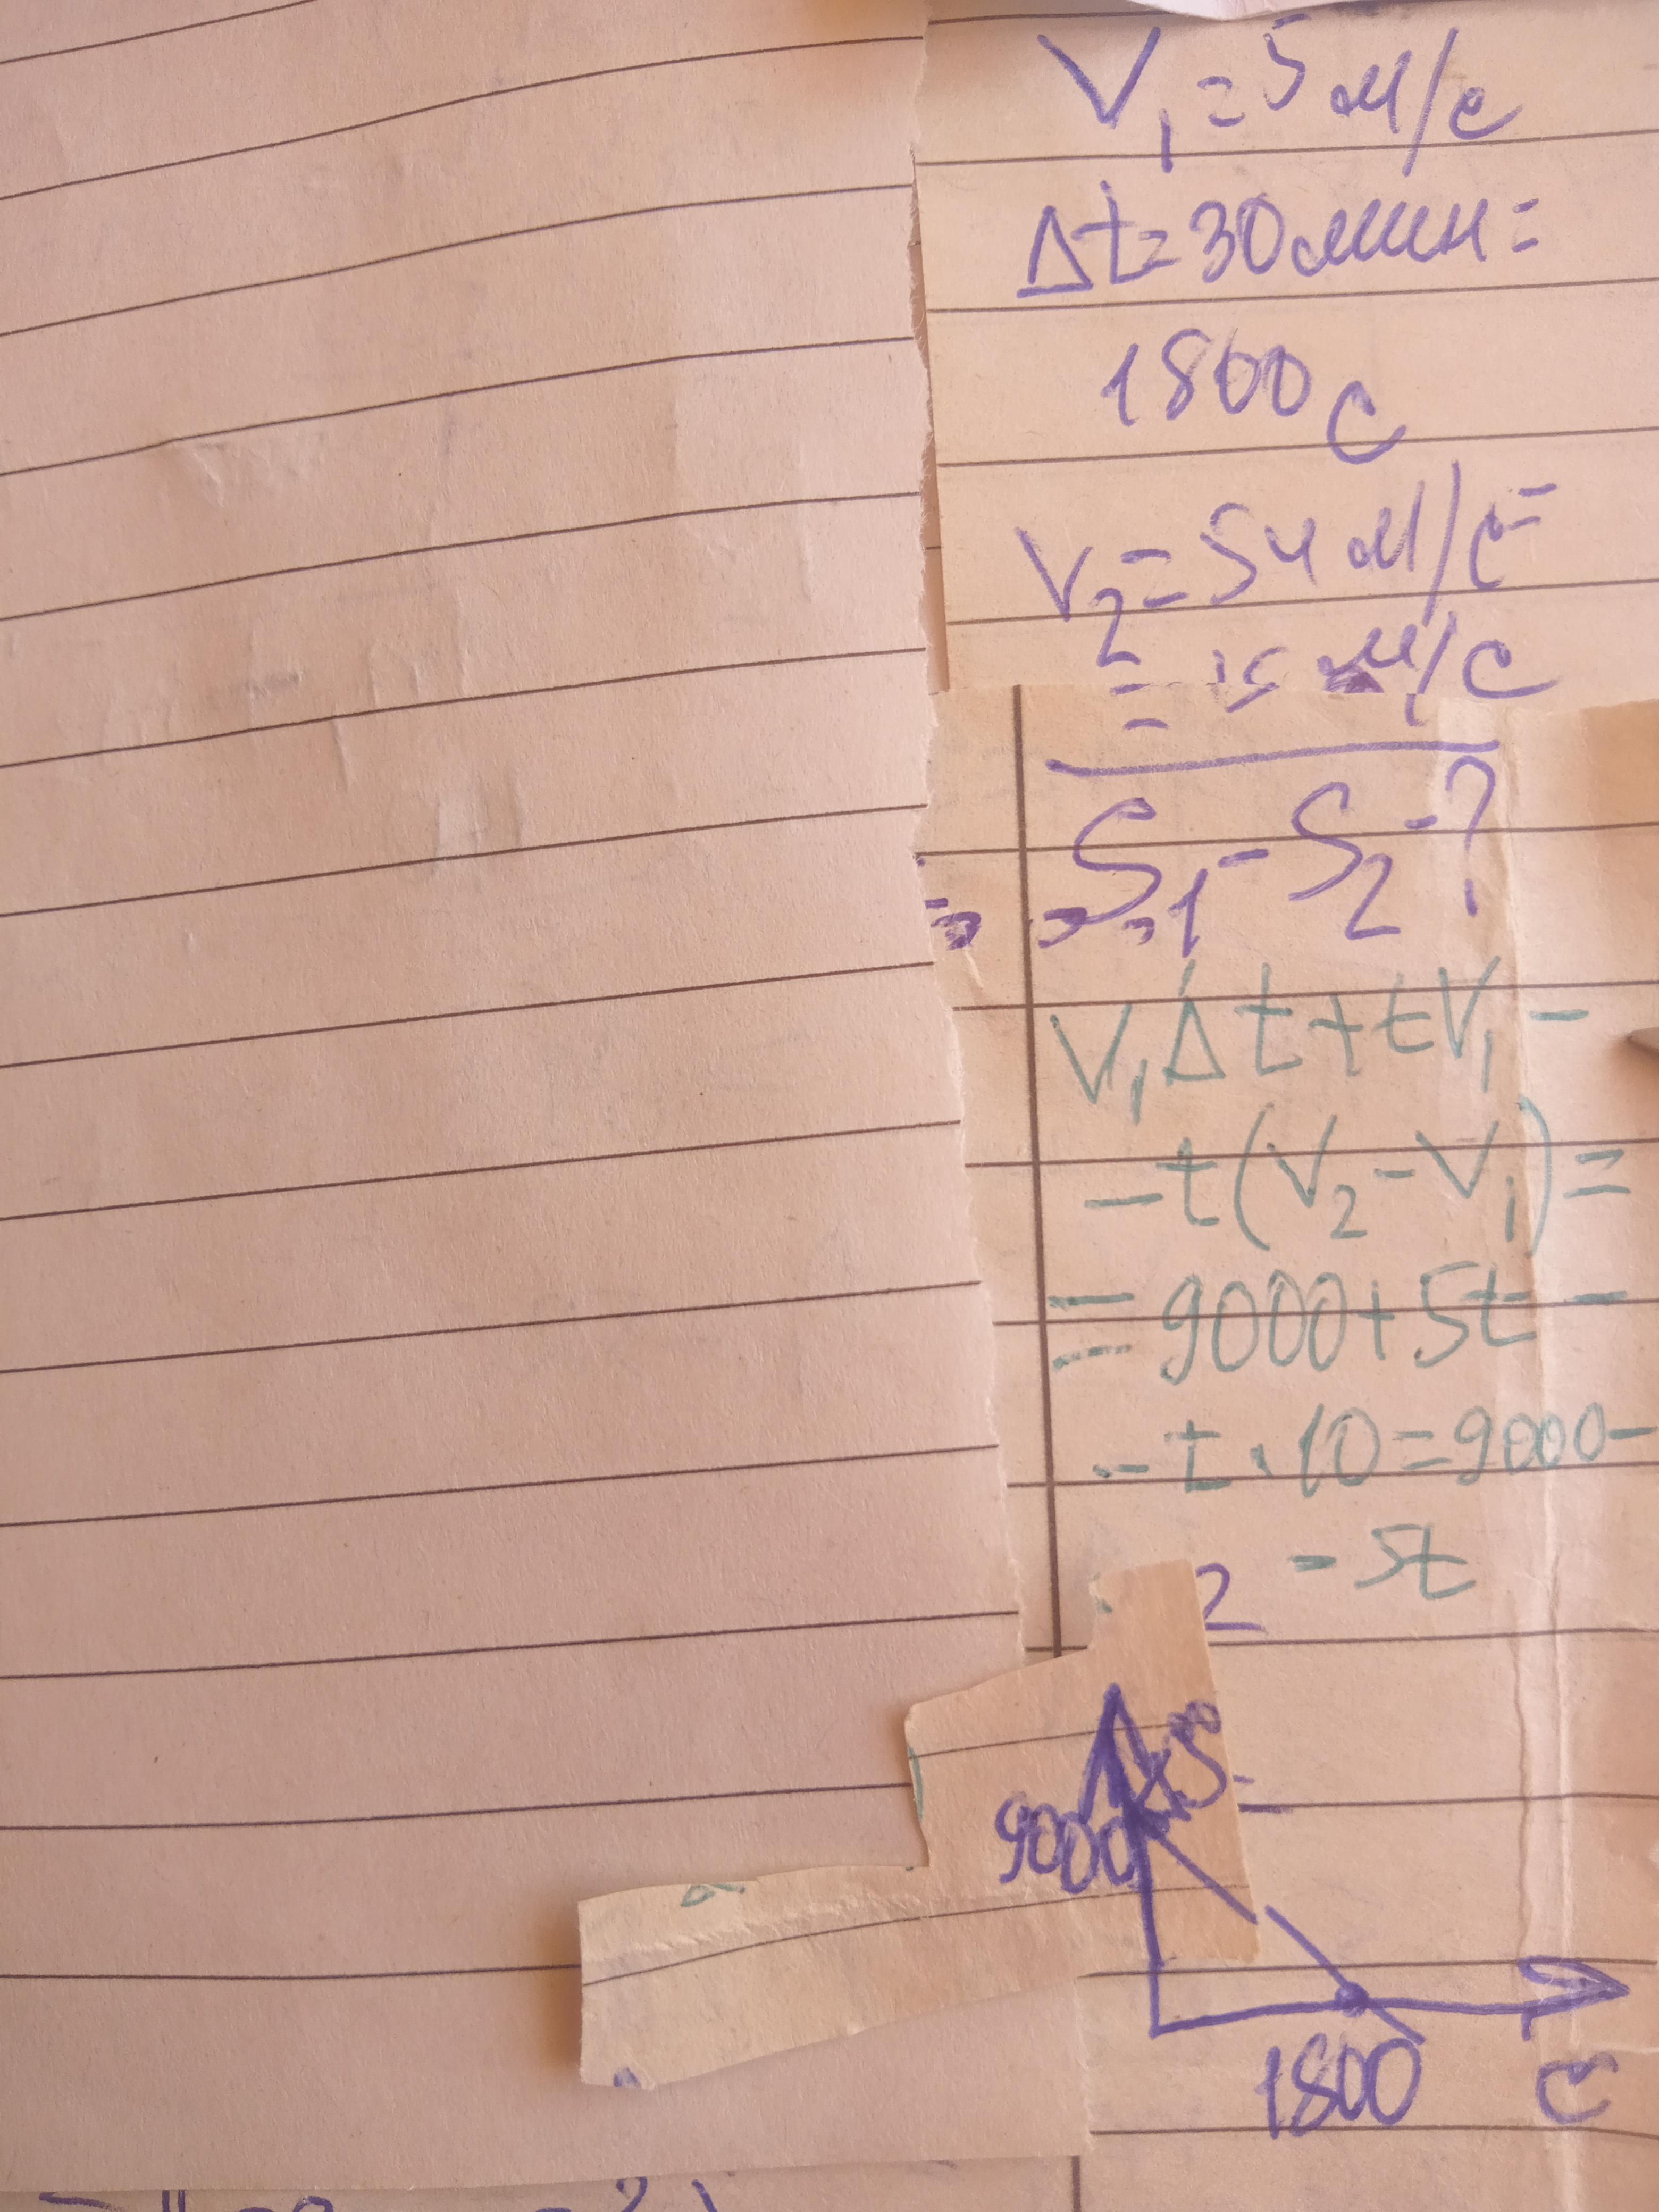 V₁=5 м/с
Δt=30мин=
1800с
V₂=54м/с=
= 15 м/с
S₁-S₂-?
V₁Δt+tV₁-
-t(V₂-V₁)=
=9000+5t-
-t·10=9000-
-5t
2
9000
1800 с